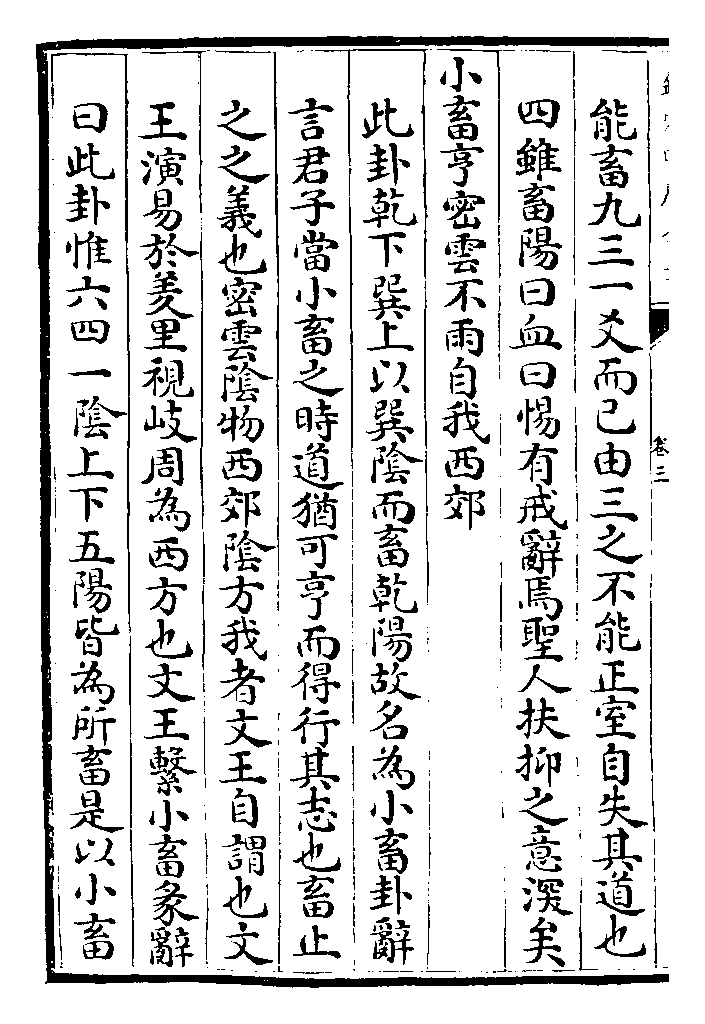 卷三
能畜九三一爻而已由三之不能正室自失其道也
四雖畜陽曰血曰惕有戒辭焉聖人扶抑之意深矣
小畜亨密雲不雨自我西郊
此卦乾下巽上以巽陰而畜乾陽故名為小畜卦辭
言君子當小畜之時道猶可亨而得行其志也畜止
之之義也密雲陰物西郊陰方我者文王自謂也文
王演易於羑里視岐周為西方也文王繫小畜彖辭
曰此卦惟六四一陰上下五陽皆為所畜是以小畜